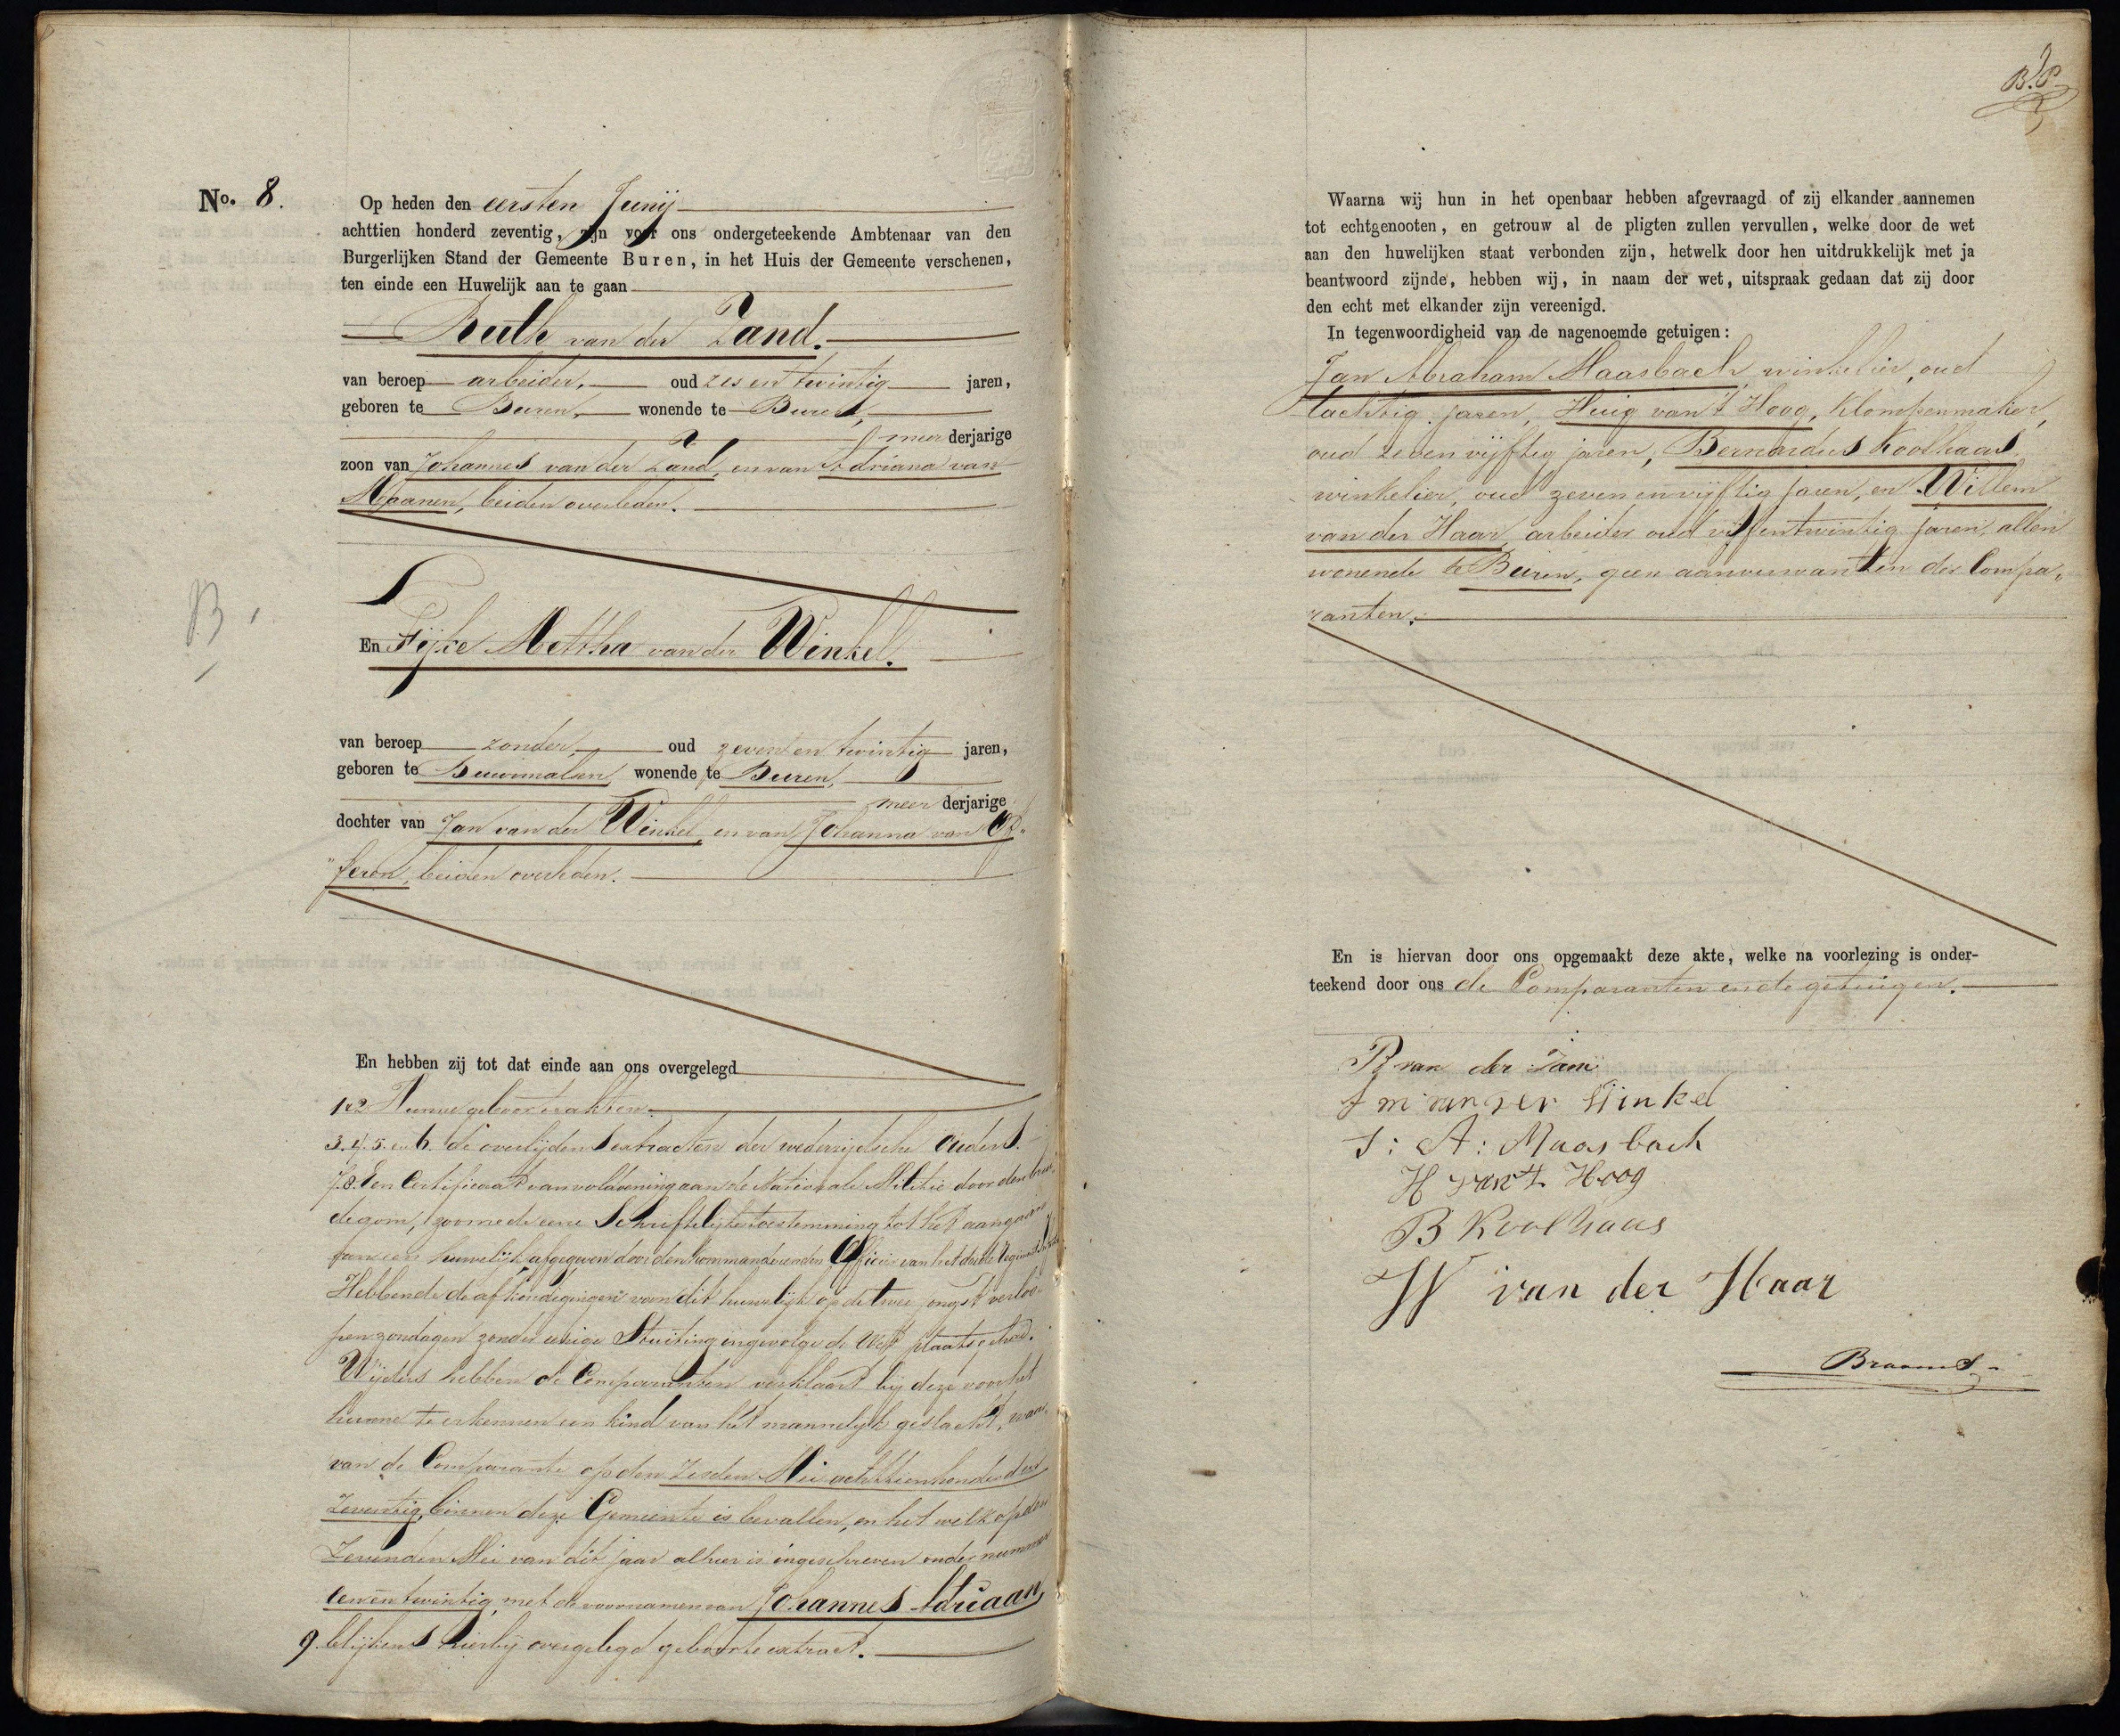 No. 8.
Op heden den eersten Junij
achttien honderd zeventig, zijn voor ons ondergeteekende Ambtenaar van den
Burgerlijken Stand der Gemeente Buren, in het Huis der Gemeente verschenen,
ten einde een Huwelijk aan te gaan
van der Zand.
van beroep arbeider, oud zes en twintig jaren,
geboren te Buren, wonende te Buren,
meer derjarige
zoon van Johannes van der Zand, en van Adriana van
Maanen, beiden overleden.
B.
En Fijke Mettha van der Winkel.
van beroep zonder, oud zeven en twintig jaren,
geboren te Buurmalsen, wonende te Buren,
meer derjarige
dochter van Jan van der Winkel, en van Johanna van Op-
"heren, beiden overleden.
En hebben zij tot dat einde aan ons overgelegd
1 en 2 Hunne geboorteakten.
3. 4. 5. en 6. de overlijdens extracten der wederzijdsche Ouders.
7. 8. Een Certificaat van voldoening aan de Nationale Militie door den brui-
degom, zoomede eene Schriftelijke toestemming tot het aangaan
van een huwelijk afgegeven door den kommanderenden Officier van het derde Regiment
Hebbende de afkondigingen van dit huwelijk op de twee jongst verloo-
pen zondagen zonder eenige Stuiting ingevolge de Wet plaats gehad.
Wijders hebben de Comparanten verklaard bij deze voor het
hunne te erkennen een kind van het mannelijk geslacht, waar-
van de Comparante op den zesden Mei achttienhonderd
zeventig, binnen deze Gemeente is bevallen, en het welk op den
zevenden Mei van dit jaar alhier is ingeschreven onder nummer
een en twintig, met de voornamen van Johannes Adriaan,
9. blijkens hierbij overgelegd geboorte extract.
B.P.
Waarna wij hun in het openbaar hebben afgevraagd of zij elkander aannemen
tot echtgenooten, en getrouw al de pligten zullen vervullen, welke door de wet
aan den huwelijken staat verbonden zijn, hetwelk door hen uitdrukkelijk met ja
beantwoord zijnde, hebben wij, in naam der wet, uitspraak gedaan dat zij door
den echt met elkander zijn vereenigd.
In tegenwoordigheid van de nagenoemde getuigen:
Jan Abraham Maasbach, winkelier, oud
tachtig jaren, Huig van 't Hoog, klompenmaker,
oud zeven vijftig jaren, Bernardus Koolhaas
winkelier, oud zeven en vijftig jaren, en Willem
van der Haar, arbeider oud vijf en twintig jaren, allen
wonende te Buren, geen aanverwanten der Compa-
ranten.
En is hiervan door ons opgemaakt deze akte, welke na voorlezing is onder-
teekend door ons de Comparanten en de getuigen.
R van der Zand
F m van der Winkel
J: A: Maasbach
H van 't Hoog
B Koolhaas
W van der Haar